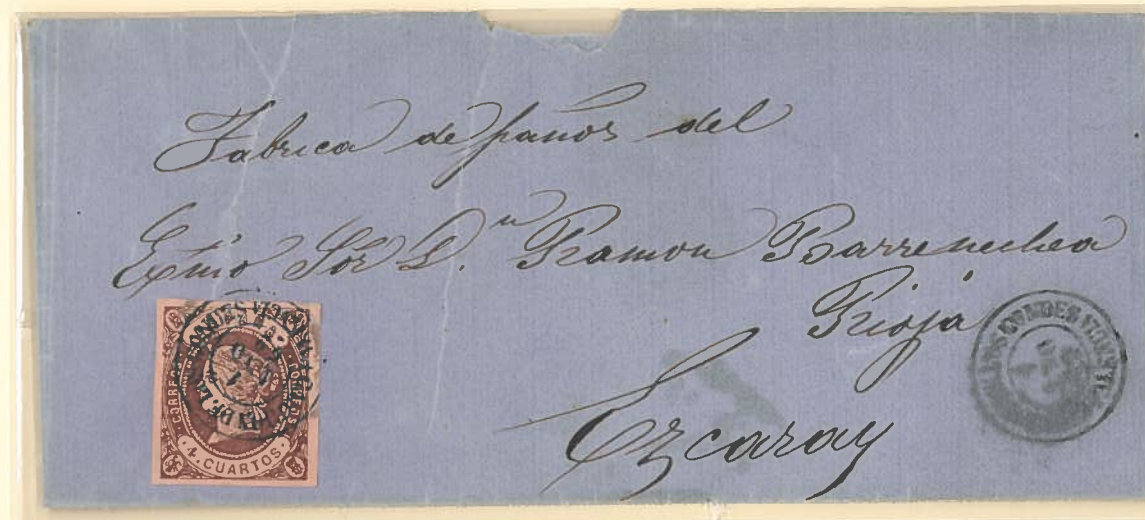 Fabrica de paños del
Exmo Sor D.n Ramon Barrenechea
Rioja
Ezcaray
CORREOS
CORREOS
4. CUARTOS.